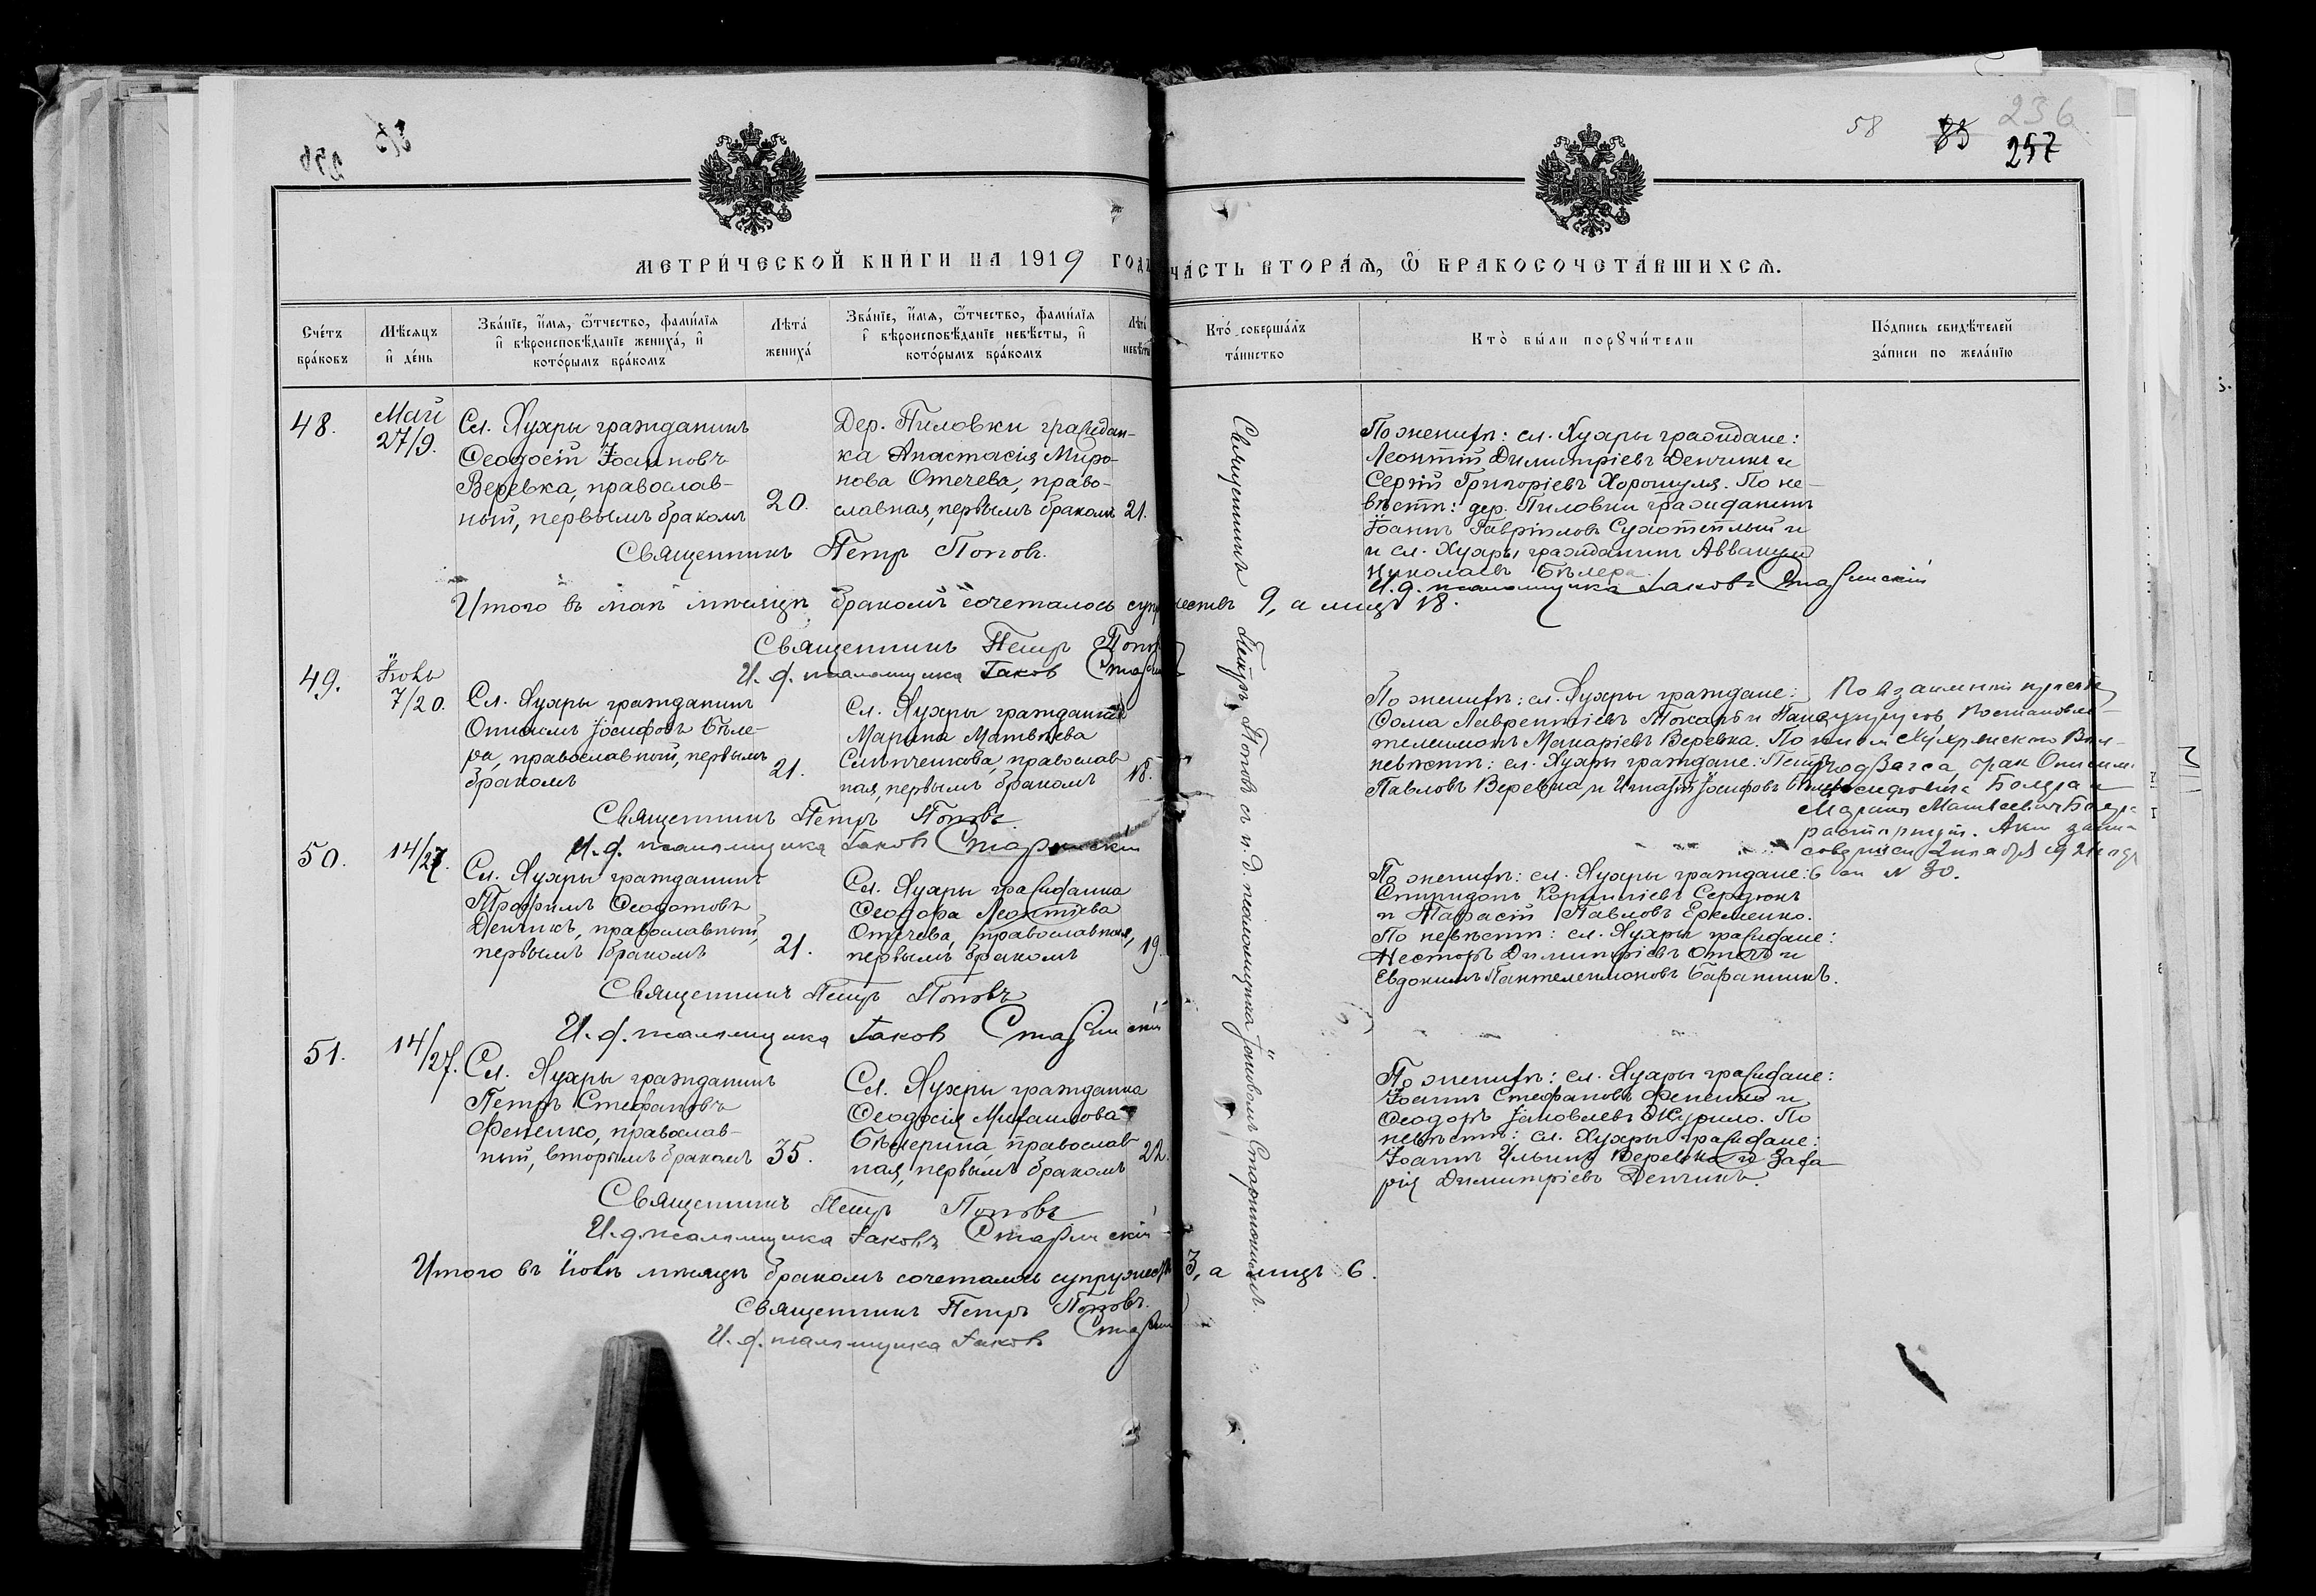 58 83 236
257
МЕТРИ́ЧЕСКОЙ КНИ́ГИ НА 1919 ГОДЪ
ЧА́СТЬ ВТОРА́Ѧ, Ѡ БРАКОСОЧЕТА́ВШИХСѦ.
Сче́тъ
бра́ковъ
Мѣ́сѧцъ
и҆ де́нь
Зва́нїе, и҆́мѧ, ѻ҆́тчество, фамѝлїѧ
и҆ вѣроисповѣ́данїе жениха́, и҆
кото́рымъ бра́комъ
Лѣта̀
жениха́
Зва́нїе, и҆́мѧ, ѻ҆́тчество, фамѝлїѧ
и҆ вѣроисповѣ́данїе невѣ́сты, и҆
кото́рымъ бра́комъ
Лѣта̀
невѣ́сты
Кто́ соверша́лъ
та́инство
Кто̀ бы́ли порꙋчи́тели
По́дпись свидѣ́телей
за́писи по жела́нїю
48.
Май
27/9.
Сл. Хухры гражданинъ
Ѳеодосій Іоанновъ
Веревка, православ-
ный, первымъ бракомъ
20.
Дер. Пиловки граждан-
ка Анастасія Миро-
нова Отечева, право-
славная, первымъ бракомъ
21.
По женихѣ: сл. Хухры граждане:
Леонтій Димитріевъ Денчикъ и
Сергій Григоріевъ Хорошуля. По не-
вѣстѣ: дер. Пиловки гражданинъ
Іоаннъ Гавріиловъ Сухотеплый и
и сл. Хухры гражданинъ Аввакумъ
Николаевъ Бѣлера.
Священникъ Петръ Поповъ.
И. д. псаломщика Іаковъ
Итого въ маѣ мѣсяцѣ бракомъ сочеталось супружествъ 9, а лицъ 18.
Священникъ Петръ Поповъ
И. д. псаломщика Іаковъ
Священникъ Петръ Поповъ съ и. д. псаломщика Іаковомъ
49.
Іюнь
7/20.
Сл. Хухры гражданинъ
Онисимъ Іосифовъ Бѣле-
ра, православный, первымъ
бракомъ
21.
Сл. Хухры гражданка
Марина Матвѣева
православ
ная, первымъ бракомъ
18.
По женихѣ: сл. Хухры граждане:
Ѳома Лаврентіевъ Токарь и Пан-
телеимонъ Макаріевъ Веревка. По
невѣстѣ: сл. Хухры граждане: Петръ
Павловъ Веревка и Игнатій Іосифовъ
брак Онисим
Марина Матвеевич
№ 30.
Священникъ Петръ Поповъ.
И. д. псаломщика Іаковъ
50.
14/27.
Сл. Хухры гражданинъ
Трофимъ Ѳеодотовъ
Денчикъ, православный,
первымъ бракомъ
21.
Сл. Хухры гражданка
Ѳеодора Леонтіева
Отечева, православная,
первымъ бракомъ
19.
По женихѣ: сл. Хухры граждане:
Спиридонъ Корниліевъ Сердюкъ
и Тарасій Павловъ Еременко.
По невѣстѣ: сл. Хухры граждане:
Несторъ Димитріевъ Отечъ и
Евдокимъ Пантелеимоновъ Баранникъ.
Священникъ Петръ Поповъ
И. д. псаломщика Іаковъ
51.
14/27.
Сл. Хухры гражданинъ
Петръ Стефановъ
Фененко, православ-
ный, вторымъ бракомъ
35.
Сл. Хухры гражданка
Ѳеодосія Михаилова
православ
ная, первымъ бракомъ
22.
По женихѣ: сл. Хухры граждане:
Іоаннъ Стефановъ Фененко и
Ѳеодоръ Іаковлевъ Журило. По
невѣстѣ: сл. Хухры граждане:
Іоаннъ Ильинъ Веревка и Заха
рія Димитріевъ Денчикъ.
Священникъ Петръ Поповъ
И. д. псаломщика Іаковъ
Итого въ іюнѣ мѣсяцѣ бракомъ сочеталось супружествъ 3, а лицъ 6.
Священникъ Петръ Поповъ.
И. д. псаломщика Іаковъ